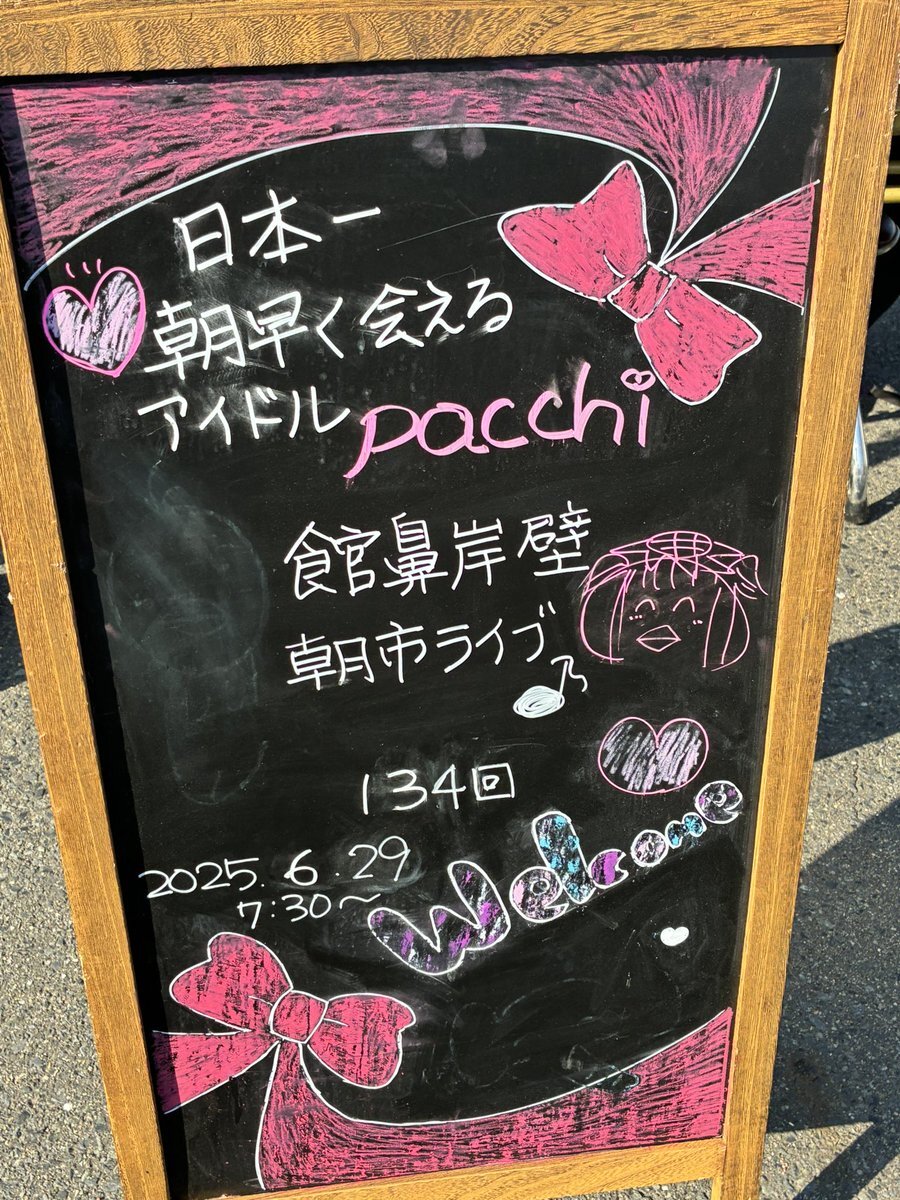 日本一
朝早く会える
アイドル pacchi
館鼻岸壁
朝市ライブ
134回
2025.6.29
7:30～
Welcome